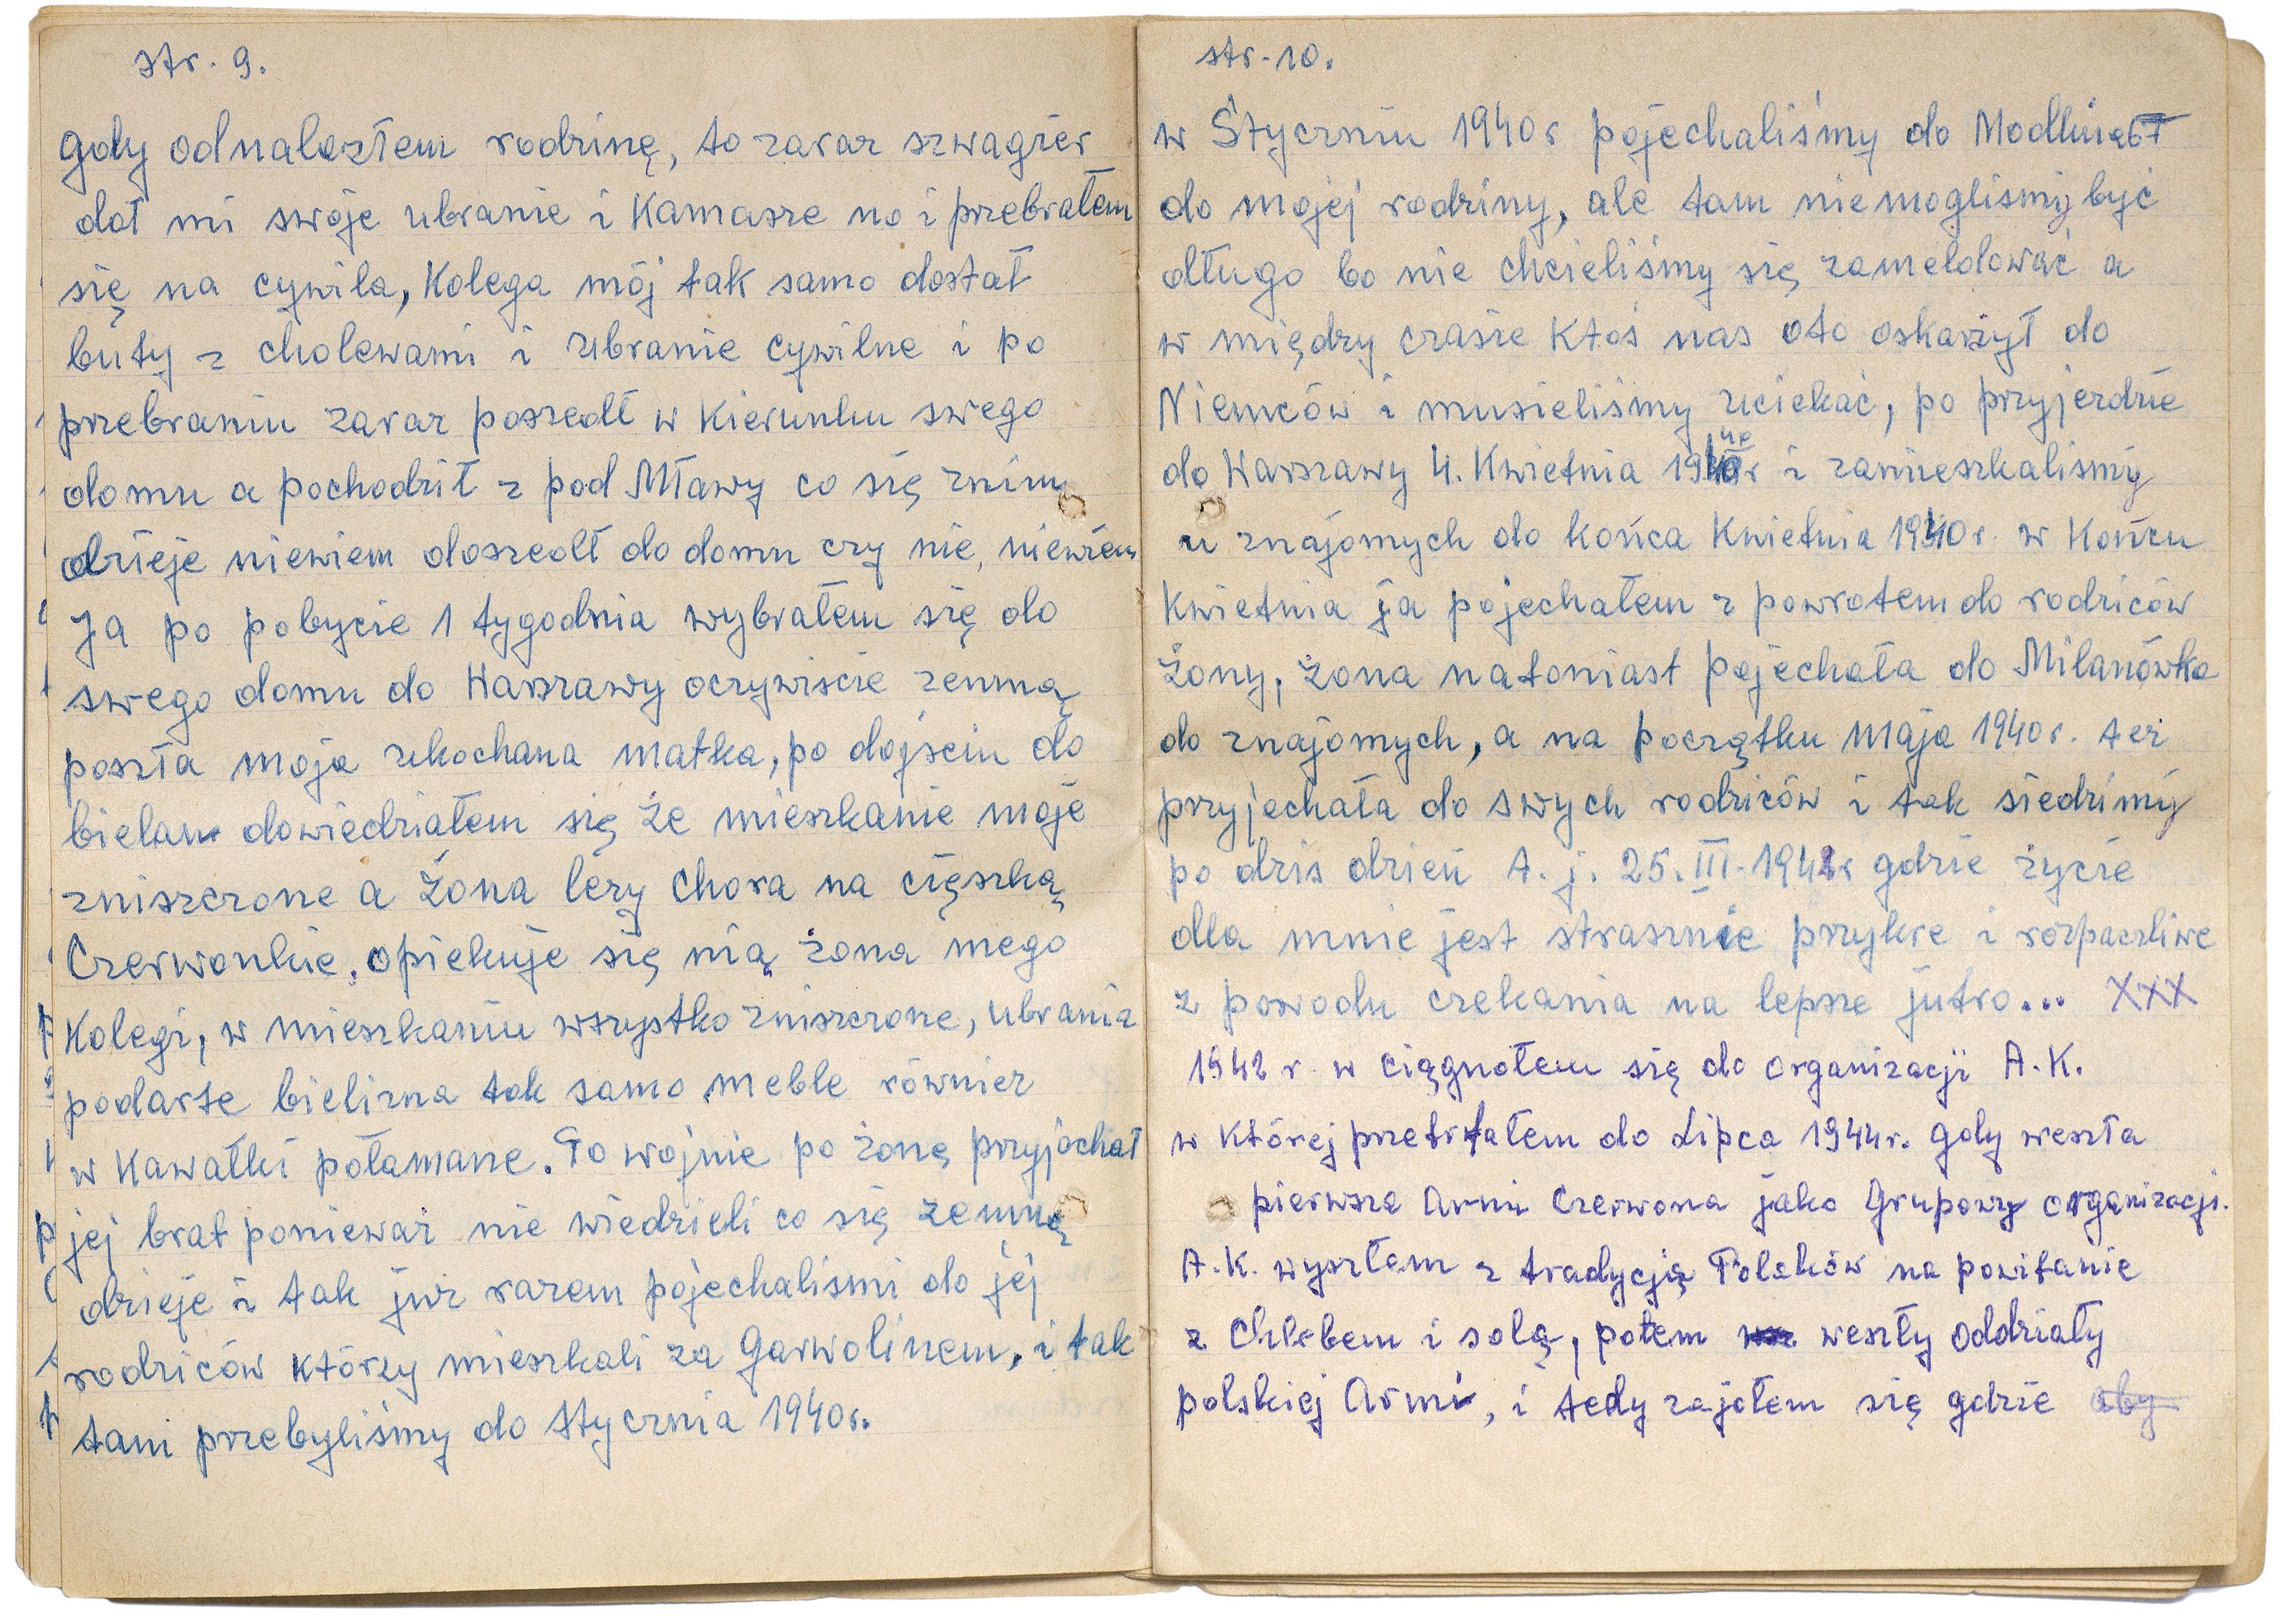 str. 9.
gdy odnalozłem rodzinę, to zaraz szwagier
dał mi swoje ubranie i Kamasze no i przebrałem
się na cywila, Kolega mój tak samo dostał
buty z cholewami i ubranie cywilne i po
przebraniu zaraz poszedł w Kierunku swego
domu a pochodził z pod Mławy co się znim
dzieje niewiem doszedł do domu czy nie, niewiem
Ja po pobycie 1 tygodnia wybrałem się do
swego domu do Warszawy oczywiscie zemną
poszła moja ukochana matka, po dojsciu do
bielan dowiedziałem się że mieszkanie moje
zniszczone a Żona leży Chora na cięszką
Czerwonkie, opiekuje się nią żona mego
Kolegi, w mieszkaniu wszystko zniszczone, ubrania
podarte bielizna tak samo meble równierz
w Kawałki połamane. Po wojnie po żonę przyjechał
jej brat poniewarz nie wiedzieli co się zemną
dzieje i tak już razem pojechalismi do jej
rodziców którzy mieszkali za Garwolinem, i tak
tam przebyliśmy do Stycznia 1940r.
str. 10.
w Styczniu 1940r pojechaliśmy do Modlina
do mojej rodziny, ale tam niemoglismy być
długo bo nie chcieliśmy się zameldować a
w między czasie Ktoś nas oto oskarżył do
Niemców i musieliśmy uciekać, po przyjezdzie
do Warszawy 4. Kwietnia 1940r i zamieszkalismy
u znajomych do końca Kwietnia 1940r. w Końcu
Kwietnia ja pojechałem z powrotem do rodziców
Żony, żona natomiast pojechała do Milanówka
do znajomych, a na początku maja 1940r. też
przyjechała do swych rodziców i tak siedzimy
po dzis dzień t. j. 25. III. 1942r gdzie życie
dla mnie jest strasznie przykre i rozpaczliwe
z powodu czekania na lepsze jutro... XXX
1942 r. w ciągnołem się do organizacji A.K.
w Której przetrfałem do Lipca 1944r. gdy weszła
pierwsza Armi Czerwona jako Grupowy organizacji.
A.K. wyszłem z tradycją Polaków na powitanie
z Chlebem i solą, potem weszły oddziały
polskiej Armi, i tedy zajołem się gdzie aby